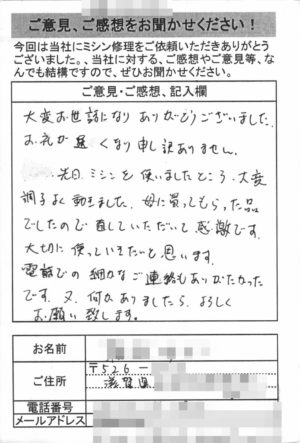 ご意見、ご感想をお聞かせください！
今回は当社にミシン修理をご依頼いただきありがとう
ございました。、当社に対する、ご感想やご意見等、な
んでも結構ですので、ぜひお聞かせください。
ご意見・ご感想、記入欄
大変お世話になり ありがとうございました。
お礼が遅くなり申し訳ありません。
先日ミシンを使いましたところ、大変
調子よく動きました。母に買ってもらった品
でしたので直していただいて感激です。
大切に使っていきたいと思います。
電話での細かなご連絡もありがたかった
です。又、何かありましたら、よろしく
お願い致します。
お名前
ご住所
〒526-
滋賀県
電話番号
メールアドレス